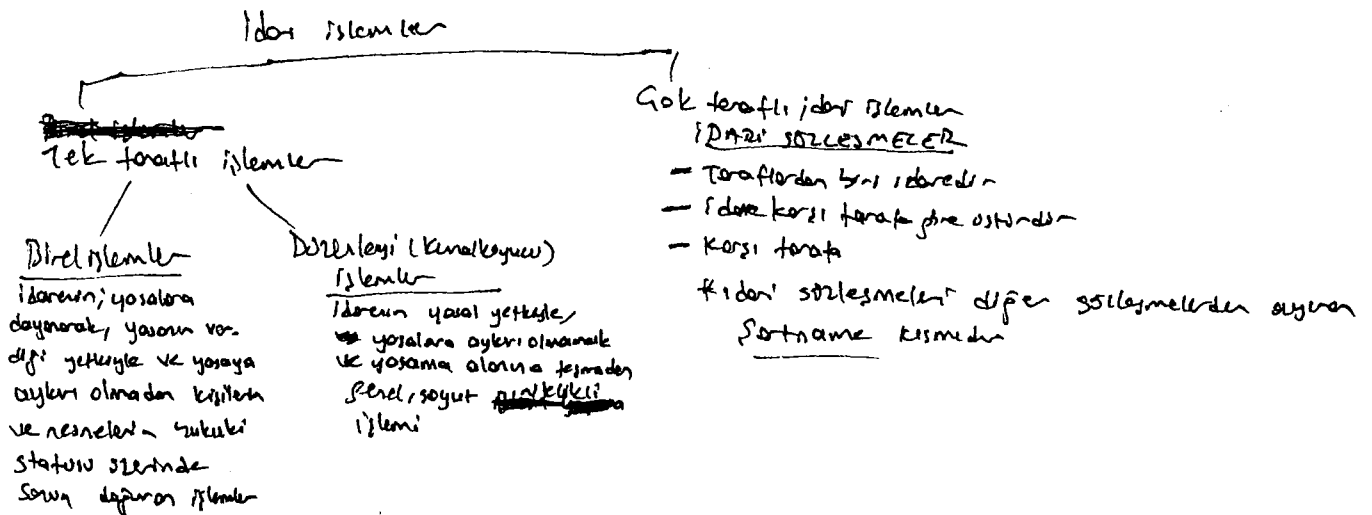 İdari işlemler
Tek taraflı işlemler
Birel işlemler
idarenin; yasalara
dayanarak, yasanın ver-
diği yetkiyle ve yasaya
aykırı olmadan kişilerin
ve nesnelerin hukuki
statüsü üzerinde
sonuç doğuran işlemler
Düzenleyici (Kuralkoyucu)
işlemler
İdarenin yasal yetkiyle,
yasalara aykırı olmamak
ve yasama alanına taşmadan
genel, soyut
işlemi
Çok taraflı idari işlemler
İDARİ SÖZLEŞMELER
- Taraflardan biri idaredir
- İdare karşı tarafa göre üstündür
- Karşı tarafa
* İdari sözleşmeleri diğer sözleşmelerden ayıran
Şartname kısmıdır